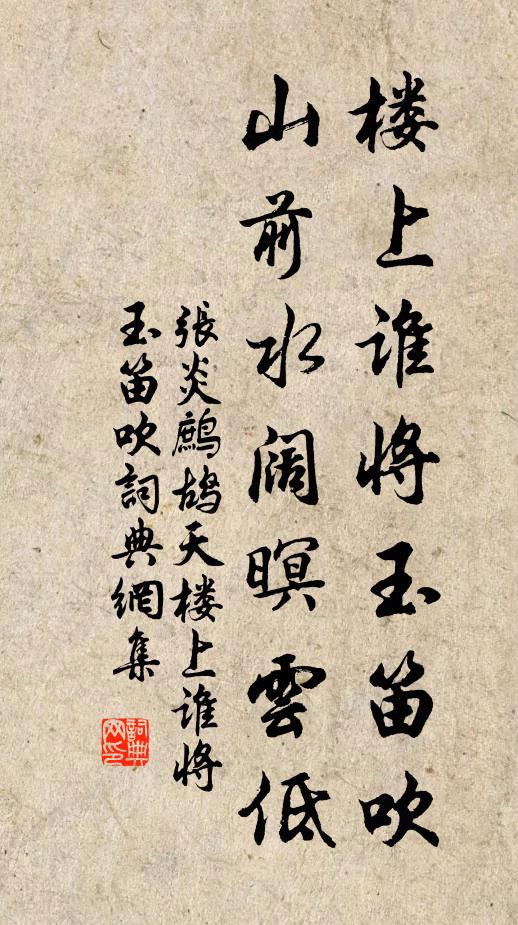 楼上谁将玉笛吹
山前水阔暝雲低
張炎鷓鴣天楼上谁将
玉笛吹詞典網集
詞典网印